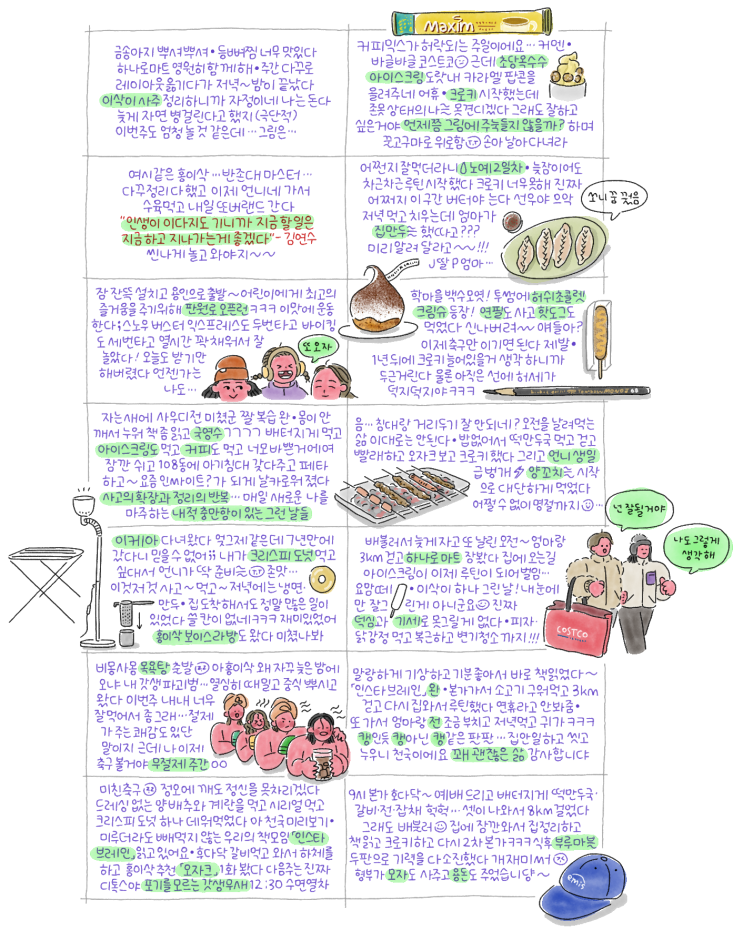 금송아지 뿌셔뿌셔 • 등뼈찜 너무 맛있다
하나로마트 영원히 함께해 • 주간 다꾸로
레이아웃 옮기다가 저녁~밤이 끝났다
이삭이 사주 정리하니까 자정이네 나는 돈다
늦게 자면 병걸린다고 했지 (극단적)
이번주도 엄청 놀 것 같은데 … 그림은 …
Maxim
커피믹스가 허락되는 주일이에요 … 커멘 •
바글바글 코스트코 근데 초당옥수수
아이스크림 도랏내 카라멜 팝콘을
올려주네 어휴 • 크로키 시작했는데
존못상태의 나는 못견디겠다 그래도 잘하고
싶은거야 언제쯤 그림에 주눅들지 않을까? 하며
꿋고구마로 위로함 손아 날아다녀라
여시같은 홍이삭 … 반존대 마스터 …
다꾸정리 다 했고 이제 언니네 가서
수육먹고 내일 또버랜드 간다
"인생이 이다지도 기니까 지금 할 일은
지금하고 지나가는게 좋겠다" - 김연수
씬나게 놀고 와야지 ~ ~
어쩐지 잘먹더라니 노예 2일차 • 늦잠이어도
차근차근 루틴 시작했다 크로키 너무 못해 진짜
어쩌지 이구간 버텨야 는다 선우야 으악
저녁 먹고 치우는데 엄마가
집만두는 했따고???
미리 알려 달라고~~!!!
J딸 P엄마 …
쏘니 꿈 꿨음
잠 잔뜩 설치고 용인으로 출발 ~ 어린이에게 최고의
즐거움을 주기위해 판원로 오픈런 ㅋㅋㅋㅋ 이맛에 운동
한다 ; 스노우 버스터 익스프레스도 두번타고 바이킹
도 세번타고 열시간 꽉 채워서 잘
놀았다! 오늘도 받기만
해버렸다 언젠가는
나도 …
또 오자
학마을 백수오옛! 투썸에 허쉬초콜렛
크림슈 등장! 연필도 사고 핫도그도
먹었다 신나버려 ~ 얘들아?
이제 축구만 이기면 된다 제발 •
1년 뒤에 크로키 늘어있을거 생각하니까
두근거린다 물론 아직은 선에 허세가
덕지덕지야 ㅋㅋㅋ
자는새에 사우디전 미쳤군 짤 복습 완 • 몽이 안
깨서 누워 책 좀 읽고 국영수 ㄱㄱㄱㄱ 배터지게 먹고
아이스크림도 먹고 커피도 먹고 너모 바쁜거에여
잠깐 쉬고 108동에 아기침대 갖다주고 페타
하고~ 요즘 인싸이트?가 되게 날카로워졌다
사고의 확장과 정리의 반복 … 매일 새로운 나를
마주하는 내적 충만함이 있는 그런 날들
음 … 침대랑 거리두기 잘 안되네? 오전을 날려먹는
삶 이대로는 안된다 • 밥없어서 떡만두국 먹고 걷고
빨래하고 오자크보고 크로키했다 그리고 언니 생일
급벙개 양꼬치는 시작
으로 다단하게 먹었다
어쩔 수 없이 명절까지 …
이케아 다녀왔다 엊그제같은데 7년만에
갔다니 믿을 수 없어 내가 크리스피 도넛 먹고
싶대서 언니가 딱 준비 존맛 …
이것저것 사고~ 먹고~ 저녁에는 냉면·
만두 • 집 도착해서도 정말 많은 일이
있었다 쓸 칸이 없네 ㅋㅋㅋ 재미있었어
홍이삭 보이스라방도 왔다 미쳤나봐
배불러서 늦게 자고 또 날린 오전~ 엄마랑
3km 걷고 하나로마트 장봤다 집에 오는길
아이스크림이 이제 루틴이 되어 벌임 …
요맘떼 • 이삭이 하나 그린 날! 내 눈에
만 잘그 린게 아니군요 진짜
덕심과 기세로 못그릴게 없다 • 피자·
닭강정 먹고 복근하고 변기청소까지!!!
넌 잘될거야
나도 그렇게
생각해
COSTCO
비몽사몽 목욕탕 출발 아 홍이삭 왜 자꾸 늦은 밤에
오냐 내 갓생 파괴범 … 열심히 때밀고 중식 뿌시고
왔다 이번주 내내 너무
잘먹어서 좀 그래 … 절제
가 주는 쾌감도 있단
말이지 근데 나 이제
축구 볼거야 무절제 주간 ○○
말랑하게 기상하고 기분좋아서 바로 책읽었다 ~
「인스타 브레인」 완 • 본가가서 소고기 구워먹고 3km
걷고 다시 집와서 루틴했다 연휴라고 안봐줌 •
또 가서 엄마랑 전 조금 부치고 저녁먹고 귀가 ㅋㅋㅋ
캥인듯 캥아닌 캥같은 팟판 … 집안일하고 씻고
누우니 천국이에요 꽤 괜찮은 삶 감사합니댜
미친축구 정오에 깨도 정신을 못차리겠다
드레싱 없는 양배추와 계란을 먹고 시리얼 먹고
크리스피 도넛 하나 데워먹었다 아 천국미리보기 •
미루더라도 빼먹지 않는 우리의 책모임 「인스타
브레인」 읽고 있어요 • 후다닥 갈비먹고 와서 하체를
하고 홍이삭 추천 「오자크」 1화 봤다 다음주는 진짜
디톡스야 포기를 모르는 갓생무새 12:30 수면열차
9시 본가 후다닥~ 예배드리고 배터지게 떡만두국·
갈비·전·잡채 헉헉 … 셋이 나와서 8km 걸었다
그래도 배불러 집에 잠깐와서 집정리하고
책읽고 크로키하고 다시 2차 본가 ㅋㅋㅋ 식후 부루마불
두판으로 기력을 다 소진했다 개재미써
형부가 모자도 사주고 용돈도 주었습니당 ~
emis